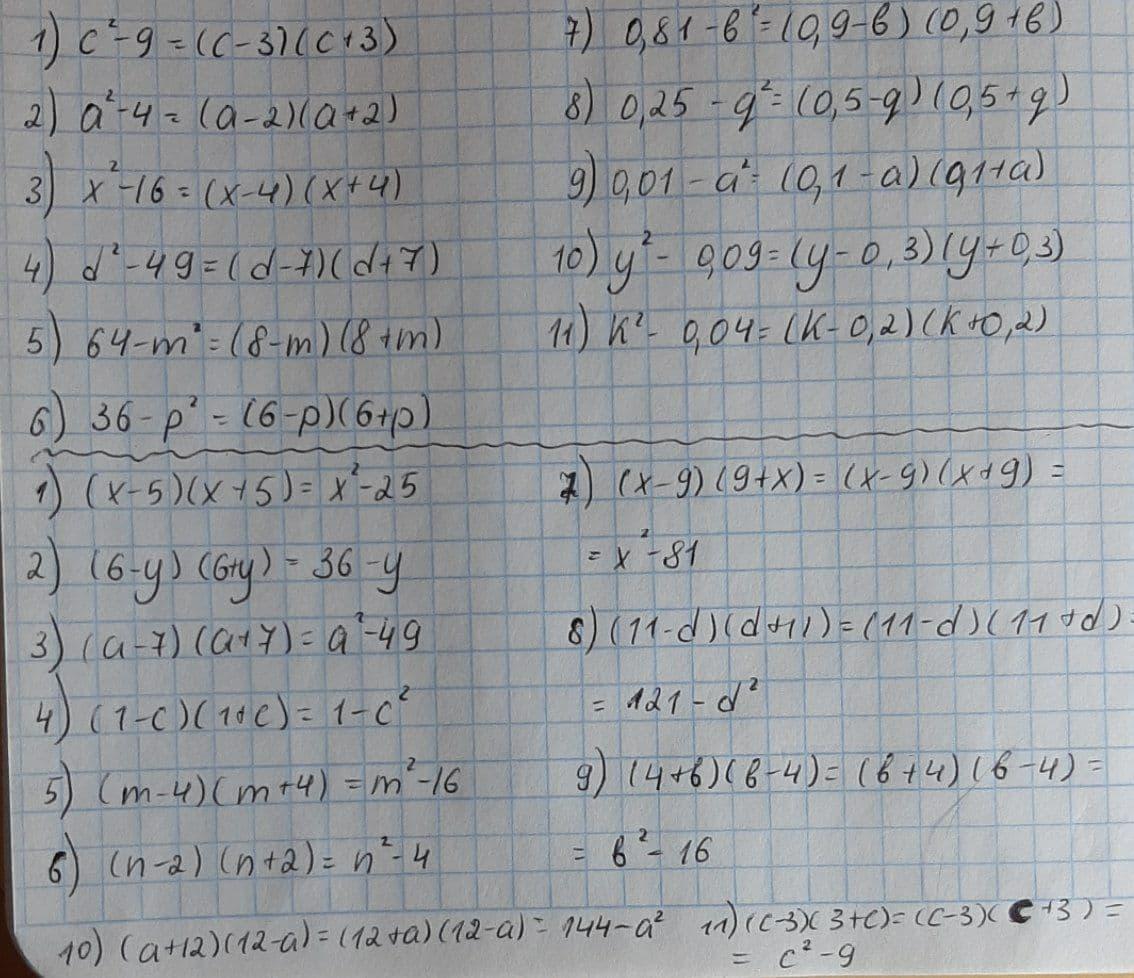 1) c²-9=(c-3)(c+3)
2) a²-4=(a-2)(a+2)
3) x²-16=(x-4)(x+4)
4) d²-49=(d-7)(d+7)
5) 64-m²=(8-m)(8+m)
6) 36-p²=(6-p)(6+p)
7) 0,81-в²=(0,9-в)(0,9+в)
8) 0,25-q²=(0,5-q)(0,5+q)
9) 0,01-a²=(0,1-a)(0,1+a)
10) y²-0,09=(y-0,3)(y+0,3)
11) k²-0,04=(k-0,2)(k+0,2)
1) (x-5)(x+5)=x²-25
2) (6-y)(6+y)=36-y
3) (a-7)(a+7)=a²-49
4) (1-c)(1+c)=1-c²
5) (m-4)(m+4)=m²-16
6) (n-2)(n+2)=n²-4
7) (x-9)(9+x)=(x-9)(x+9)=
=x²-81
8) (11-d)(d+11)=(11-d)(11+d)=
=121-d²
9) (4+в)(в-4)=(в+4)(в-4)=
=в²-16
10) (a+12)(12-a)=(12+a)(12-a)=144-a²
11) (c-3)(3+c)=(c-3)(c+3)=
=c²-9